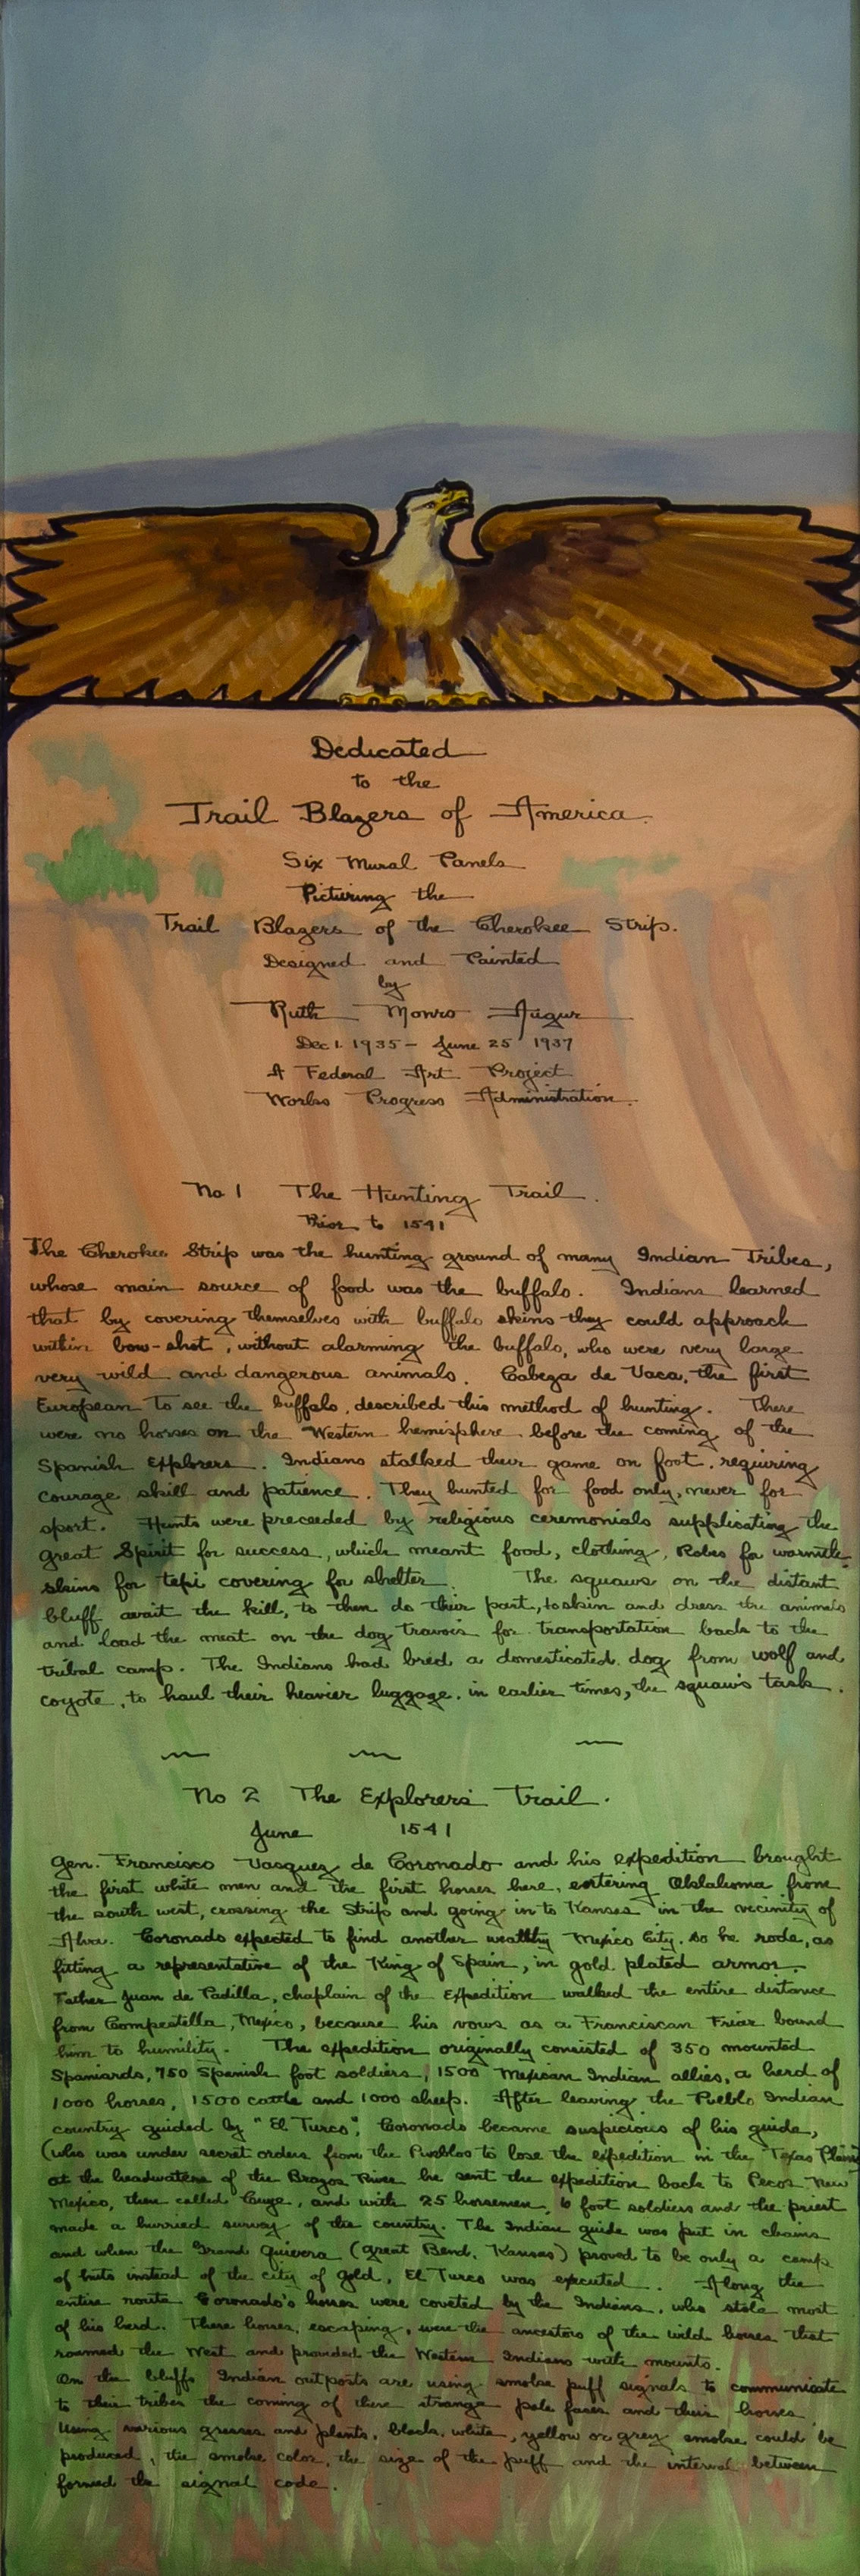 Dedicated
to the
Trail Blazers of America.
Six Mural Panels
Picturing the
Trail Blazers of the Cherokee Strip.
Designed and Painted
by
Ruth Monro Augur
Dec 1. 1935 - June 25 1937
A Federal Art Project
Works Progress Administration.
No 1 The Hunting Trail.
Prior to 1541
The Cherokee Strip was the hunting ground of many Indian Tribes,
whose main source of food was the buffalo. Indians learned
that by covering themselves with buffalo skins they could approach
within bow-shot, without alarming the buffalo, who were very large
very wild and dangerous animals. Cabeza de Vaca, the first
European to see the buffalo, described this method of hunting. There
were no horses on the Western hemisphere before the coming of the
Spanish Explorers. Indians stalked their game on foot, requiring
courage skill and patience. They hunted for food only, never for
sport. Hunts were preceeded by religious ceremonials supplicating the
great Spirit for success, which meant food, clothing, Robes for warmth
skins for tepi covering for shelter. The squaws on the distant
bluff await the kill, to then do their part, to skin and dress the animals
and load the meat on the dog travois for transportation back to the
tribal camp. The Indians had bred a domesticated dog from wolf and
coyote, to haul their heavier luggage, in earlier times, the squaw's task.
No 2 The Explorers Trail.
June 1541
Gen. Francisco Vasquez de Coronado and his expedition brought
the first white men and the first horses here, entering Oklahoma from
the south west, crossing the Strip and going in to Kansas in the vicinity of
Alva. Coronado expected to find another wealthy Mexico City. so he rode, as
fitting a representative of the King of Spain, in gold plated armor.
Father Juan de Padilla, chaplain of the Expedition walked the entire distance
from Compestella, Mexico, because his vows as a Franciscan Friar bound
him to humility. The expedition originally consisted of 350 mounted
Spaniards, 750 Spanish foot soldiers, 1500 Mexican Indian allies, a herd of
1000 horses, 1500 cattle and 1000 sheep. After leaving the Pueblo Indian
country guided by "El Turco", Coronado became suspicious of his guide,
(who was under secret orders from the Pueblos to lose the expedition in the Texas Plains
at the headwaters of the Brazos River he sent the expedition back to Pecos New
Mexico, then called and with 25 horsemen, 6 foot soldiers and the priest
made a hurried survey of the country. The Indian guide was put in chains
and when the Grand Quivera (great Bend, Kansas) proved to be only a camp
of huts instead of the city of gold, El Turco was executed. Along the
entire route Coronado's horses were coveted by the Indians, who stole most
of his herd. These horses, escaping, were the ancestors of the wild horses that
roamed the West and provided the Western Indians with mounts.
On the bluffs Indian outposts are using smoke puff signals to communicate
to their tribes the coming of these strange pale faces and their horses
Using various grasses and plants, black, white, yellow or grey smoke could be
produced, the smoke color, the size of the puff and the interval between
formed the signal code.